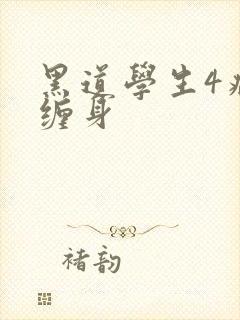 黑道學生4
缠身
褚韵